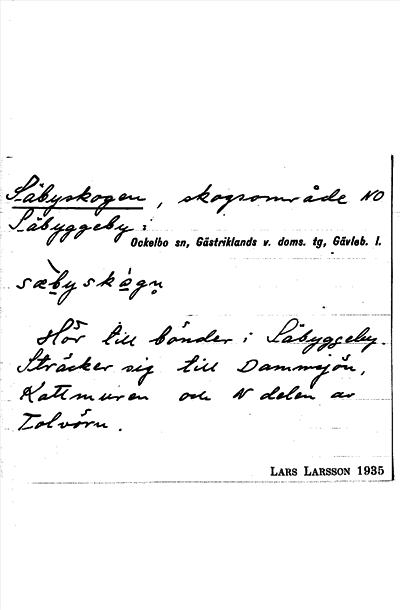 Säbyskogen, skogsområde NO
Säbyggeby i
Ockelbo sn, Gästriklands v. doms. tg, Gävleb. l.
Hör till bönder i Säbyggeby.
Sträcker sig till Dammsjön,
Kattmuren och N delen av
Tolvörn.
LARS LARSSON 1935